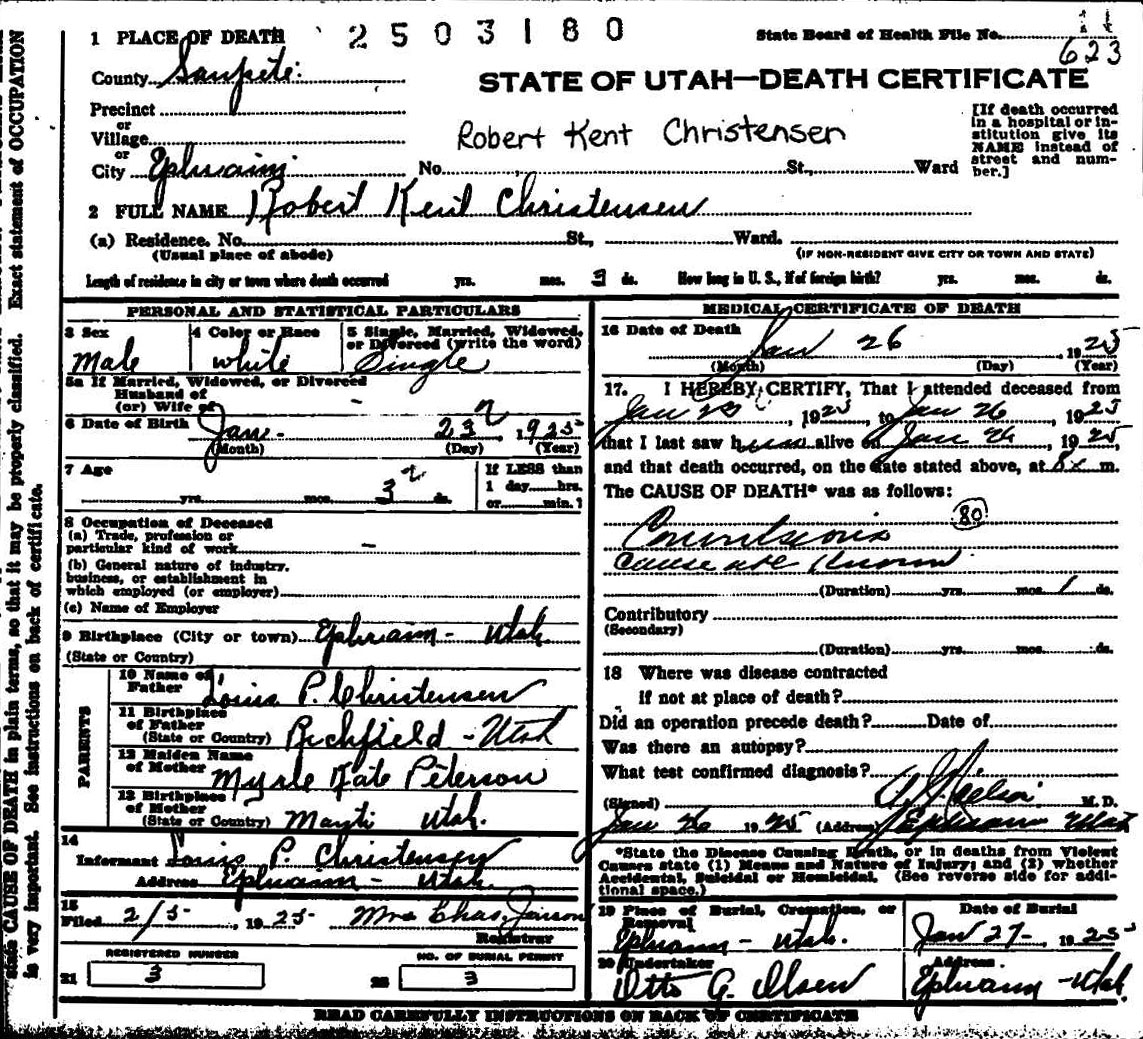 1 PLACE OF DEATH 2503180 State Board of Health File No. 11
623
County Sanpete.
STATE OF UTAH—DEATH CERTIFICATE
Precinct
or
Village
or
City Ephraim No. , St., Ward
Robert Kent Christensen
[If death occurred in a hospital or institution give its NAME instead of street and number.]
2 FULL NAME Robert Kent Christensen
(a) Residence. No. St., Ward.
(Usual place of abode) (IF NON-RESIDENT GIVE CITY OR TOWN AND STATE)
Length of residence in city or town where death occurred yrs. mos. 3 ds. How long in U. S., if of foreign birth? yrs. mos. ds.
PERSONAL AND STATISTICAL PARTICULARS
3 Sex
Male
4 Color or Race
white
5 Single, Married, Widowed, or Divorced (write the word)
Single
5a If Married, Widowed, or Divorced
Husband of
(or) Wife of
6 Date of Birth Jan- 23 1925
(Month) (Day) (Year)
7 Age
yrs. mos. 3 ds.
If LESS than
1 day hrs.
or min.?
8 Occupation of Deceased
(a) Trade, profession or
particular kind of work –
(b) General nature of industry,
business, or establishment in
which employed (or employer)
(c) Name of Employer
9 Birthplace (City or town) Ephraim- Utah
(State or Country)
PARENTS
10 Name of
Father Louis P. Christensen
11 Birthplace
of Father
(State or Country) Richfield - Utah
12 Maiden Name
of Mother Myrle Kate Peterson
13 Birthplace
of Mother
(State or Country) Manti Utah.
14
Informant Louis P. Christensen
Address Ephraim- Utah.
15
Filed 2/5-, 1925- Mrs Chas. Jenson
Registrar
REGISTERED NUMBER
21 3
NO. OF BURIAL PERMIT
22 3
MEDICAL CERTIFICATE OF DEATH
16 Date of Death
Jan 26, 1925
(Month) (Day) (Year)
17. I HEREBY CERTIFY, That I attended deceased from
Jan 23, 1925, to Jan 26, 1925
that I last saw him alive on Jan 26, 1925,
and that death occurred, on the date stated above, at m.
The CAUSE OF DEATH* was as follows:
80
Convulsions
Cause not Known
(Duration) yrs. mos. 1 ds.
Contributory
(Secondary)
(Duration) yrs. mos. ds.
18 Where was disease contracted
if not at place of death?
Did an operation precede death? Date of
Was there an autopsy?
What test confirmed diagnosis?
(Signed) M. D.
Jan 26 1925 (Address) Ephraim Utah
*State the Disease Causing Death, or in deaths from Violent
Causes state (1) Means and Nature of Injury; and (2) whether
Accidental, Suicidal or Homicidal. (See reverse side for addi-
tional space.)
19 Place of Burial, Cremation, or
Removal
Ephraim- Utah.
Date of Burial
Jan 27-, 1925
20 Undertaker
Otto G. Olsen
Address.
Ephraim-Utah.
READ CAREFULLY INSTRUCTIONS ON BACK OF CERTIFICATE
state CAUSE OF DEATH in plain terms, so that it may be properly classified. Exact statement of OCCUPATION
is very important. See instructions on back of certificate.